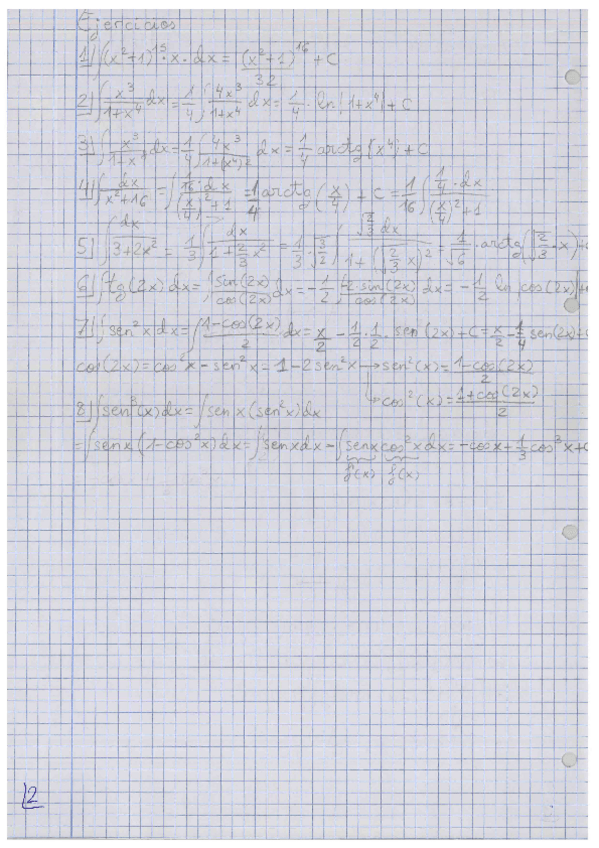 Ejercicios
1) ∫(x²+1)¹⁵·x·dx = (x²+1)¹⁶/32 + C
2) ∫ x³/(1+x⁴) dx = 1/4 ∫ 4x³/(1+x⁴) dx = 1/4 · ln|1+x⁴| + C
3) ∫ x³/(1+x⁴) dx = 1/4 ∫ 4x³/(1+(x⁴)²) dx = 1/4 arctg(x⁴) + C
4) ∫ dx/(x²+16) = ∫ (1/16 · dx)/((x/4)²+1) = 1/4 arctg(x/4) + C = 1/16 ∫ (1/4 · dx)/((x/4)²+1)
5) ∫ dx/(3+2x²) = 1/3 ∫ dx/(1+2/3 x²) = 1/3 · √(3/2) ∫ (√(2/3) dx)/(1+(√(2/3) x)²) = 1/√6 · arctg(√(2/3) · x) + C
6) ∫ tg(2x) dx = ∫ sin(2x)/cos(2x) dx = -1/2 ∫ -2·sin(2x)/cos(2x) dx = -1/2 ln|cos(2x)| +
7) ∫ sen²x dx = ∫ (1-cos(2x))/2 dx = x/2 - 1/2 · 1/2 · sen(2x) + C = x/2 - 1/4 sen(2x) + C
cos(2x) = cos²x - sen²x = 1 - 2sen²x → sen²(x) = (1-cos(2x))/2
↳ cos²(x) = (1+cos(2x))/2
8) ∫ sen³(x) dx = ∫ sen x (sen²x) dx
= ∫ sen x (1-cos²x) dx = ∫ sen x dx - ∫ sen x cos²x dx = -cos x + 1/3 cos³x + C
f'(x) f(x)
2